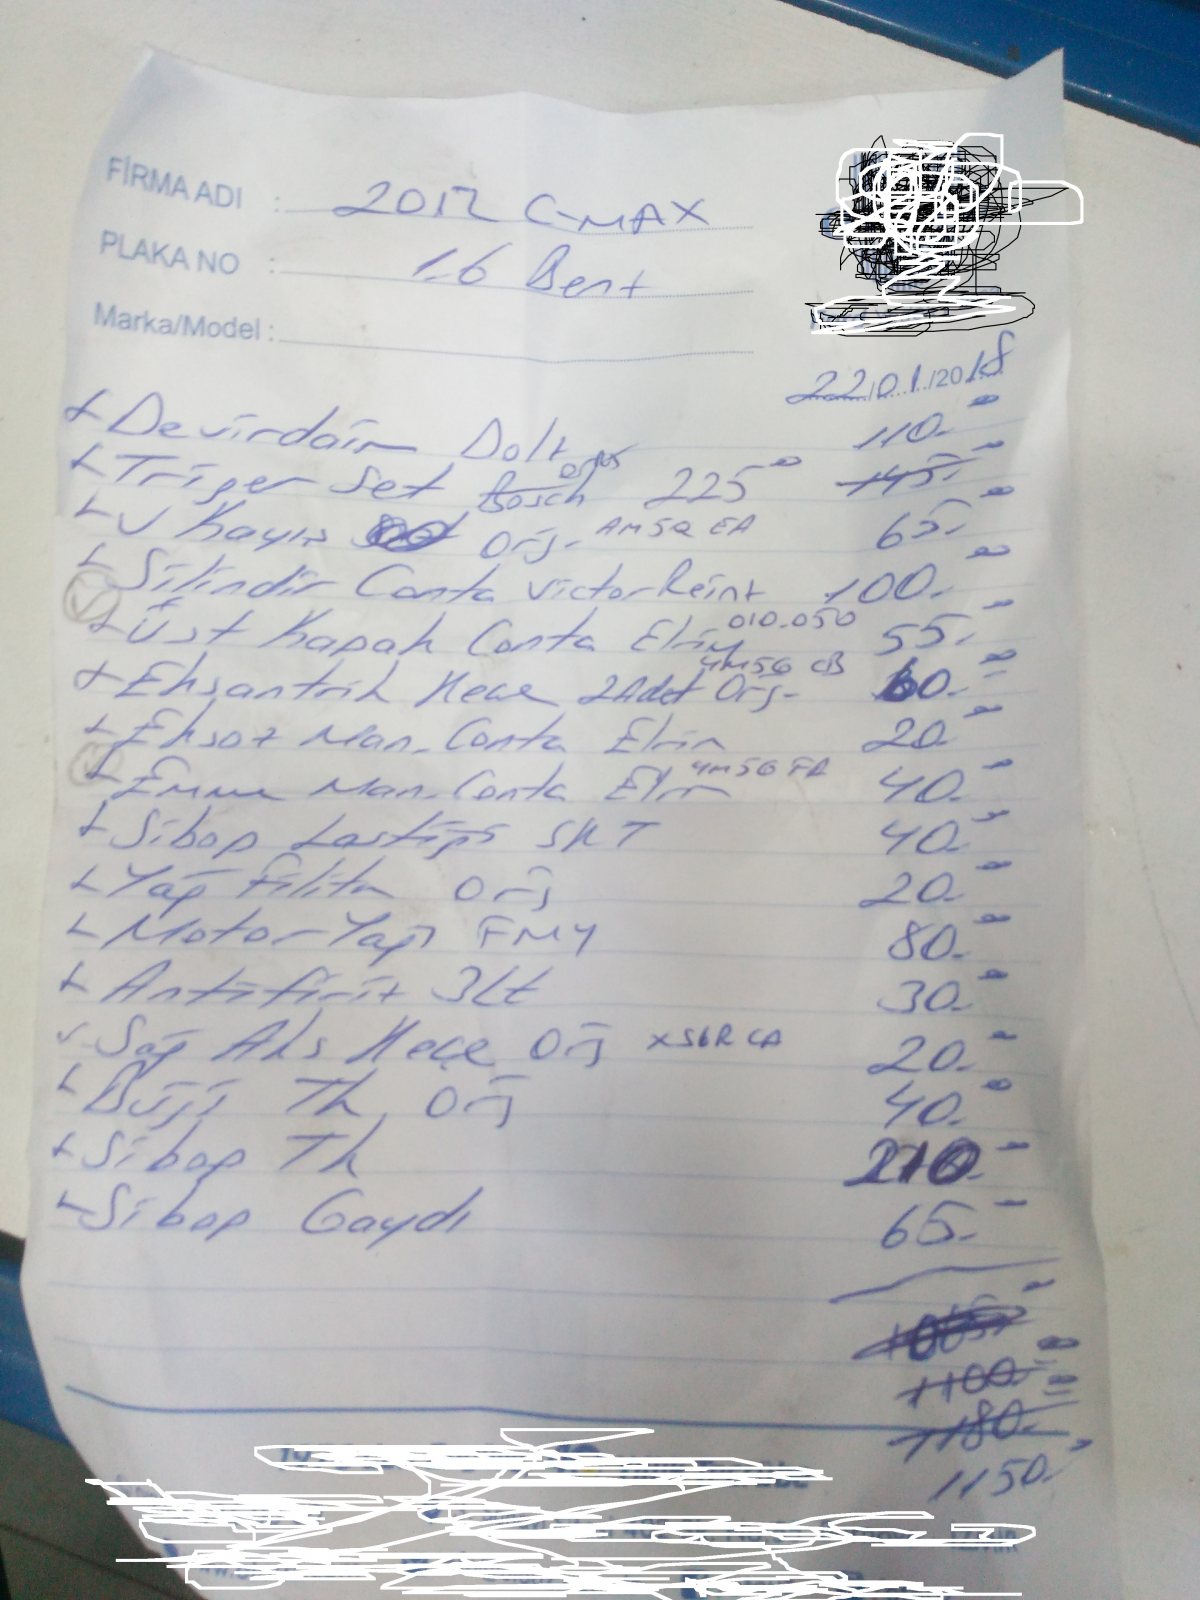 FİRMA ADI : 2012 C-MAX
PLAKA NO : 1.6 Bent
Marka/Model :
22/01/2018
Devirdaim Dolt 110.-
Triger Set Bosch orjs 225 145.-
V Kayış Orj. AM5Q EA 65.-
Silindir Conta Victor Reint 100.-
Üst Kapak Conta Elrin 010.050 55.-
Eksantrik Keçe 2 Adet Orj- 4M5G CB 60.-
Eksoz Man. Conta Elrin 20.-
Emme Man. Conta Elrin 4M5G FA 40.-
Sibop Lastiği SKT 40.-
Yağ Filitre Orj 20.-
Motor Yağı FMY 80.-
Antifiriz 3Lt 30.-
Sağ Aks Keçe Orj XS6R CA 20.-
Buji Tk Orj 40.-
Sibop Tk 210.-
Sibop Gaydı 65.-
1100.-
1180.-
1150.-